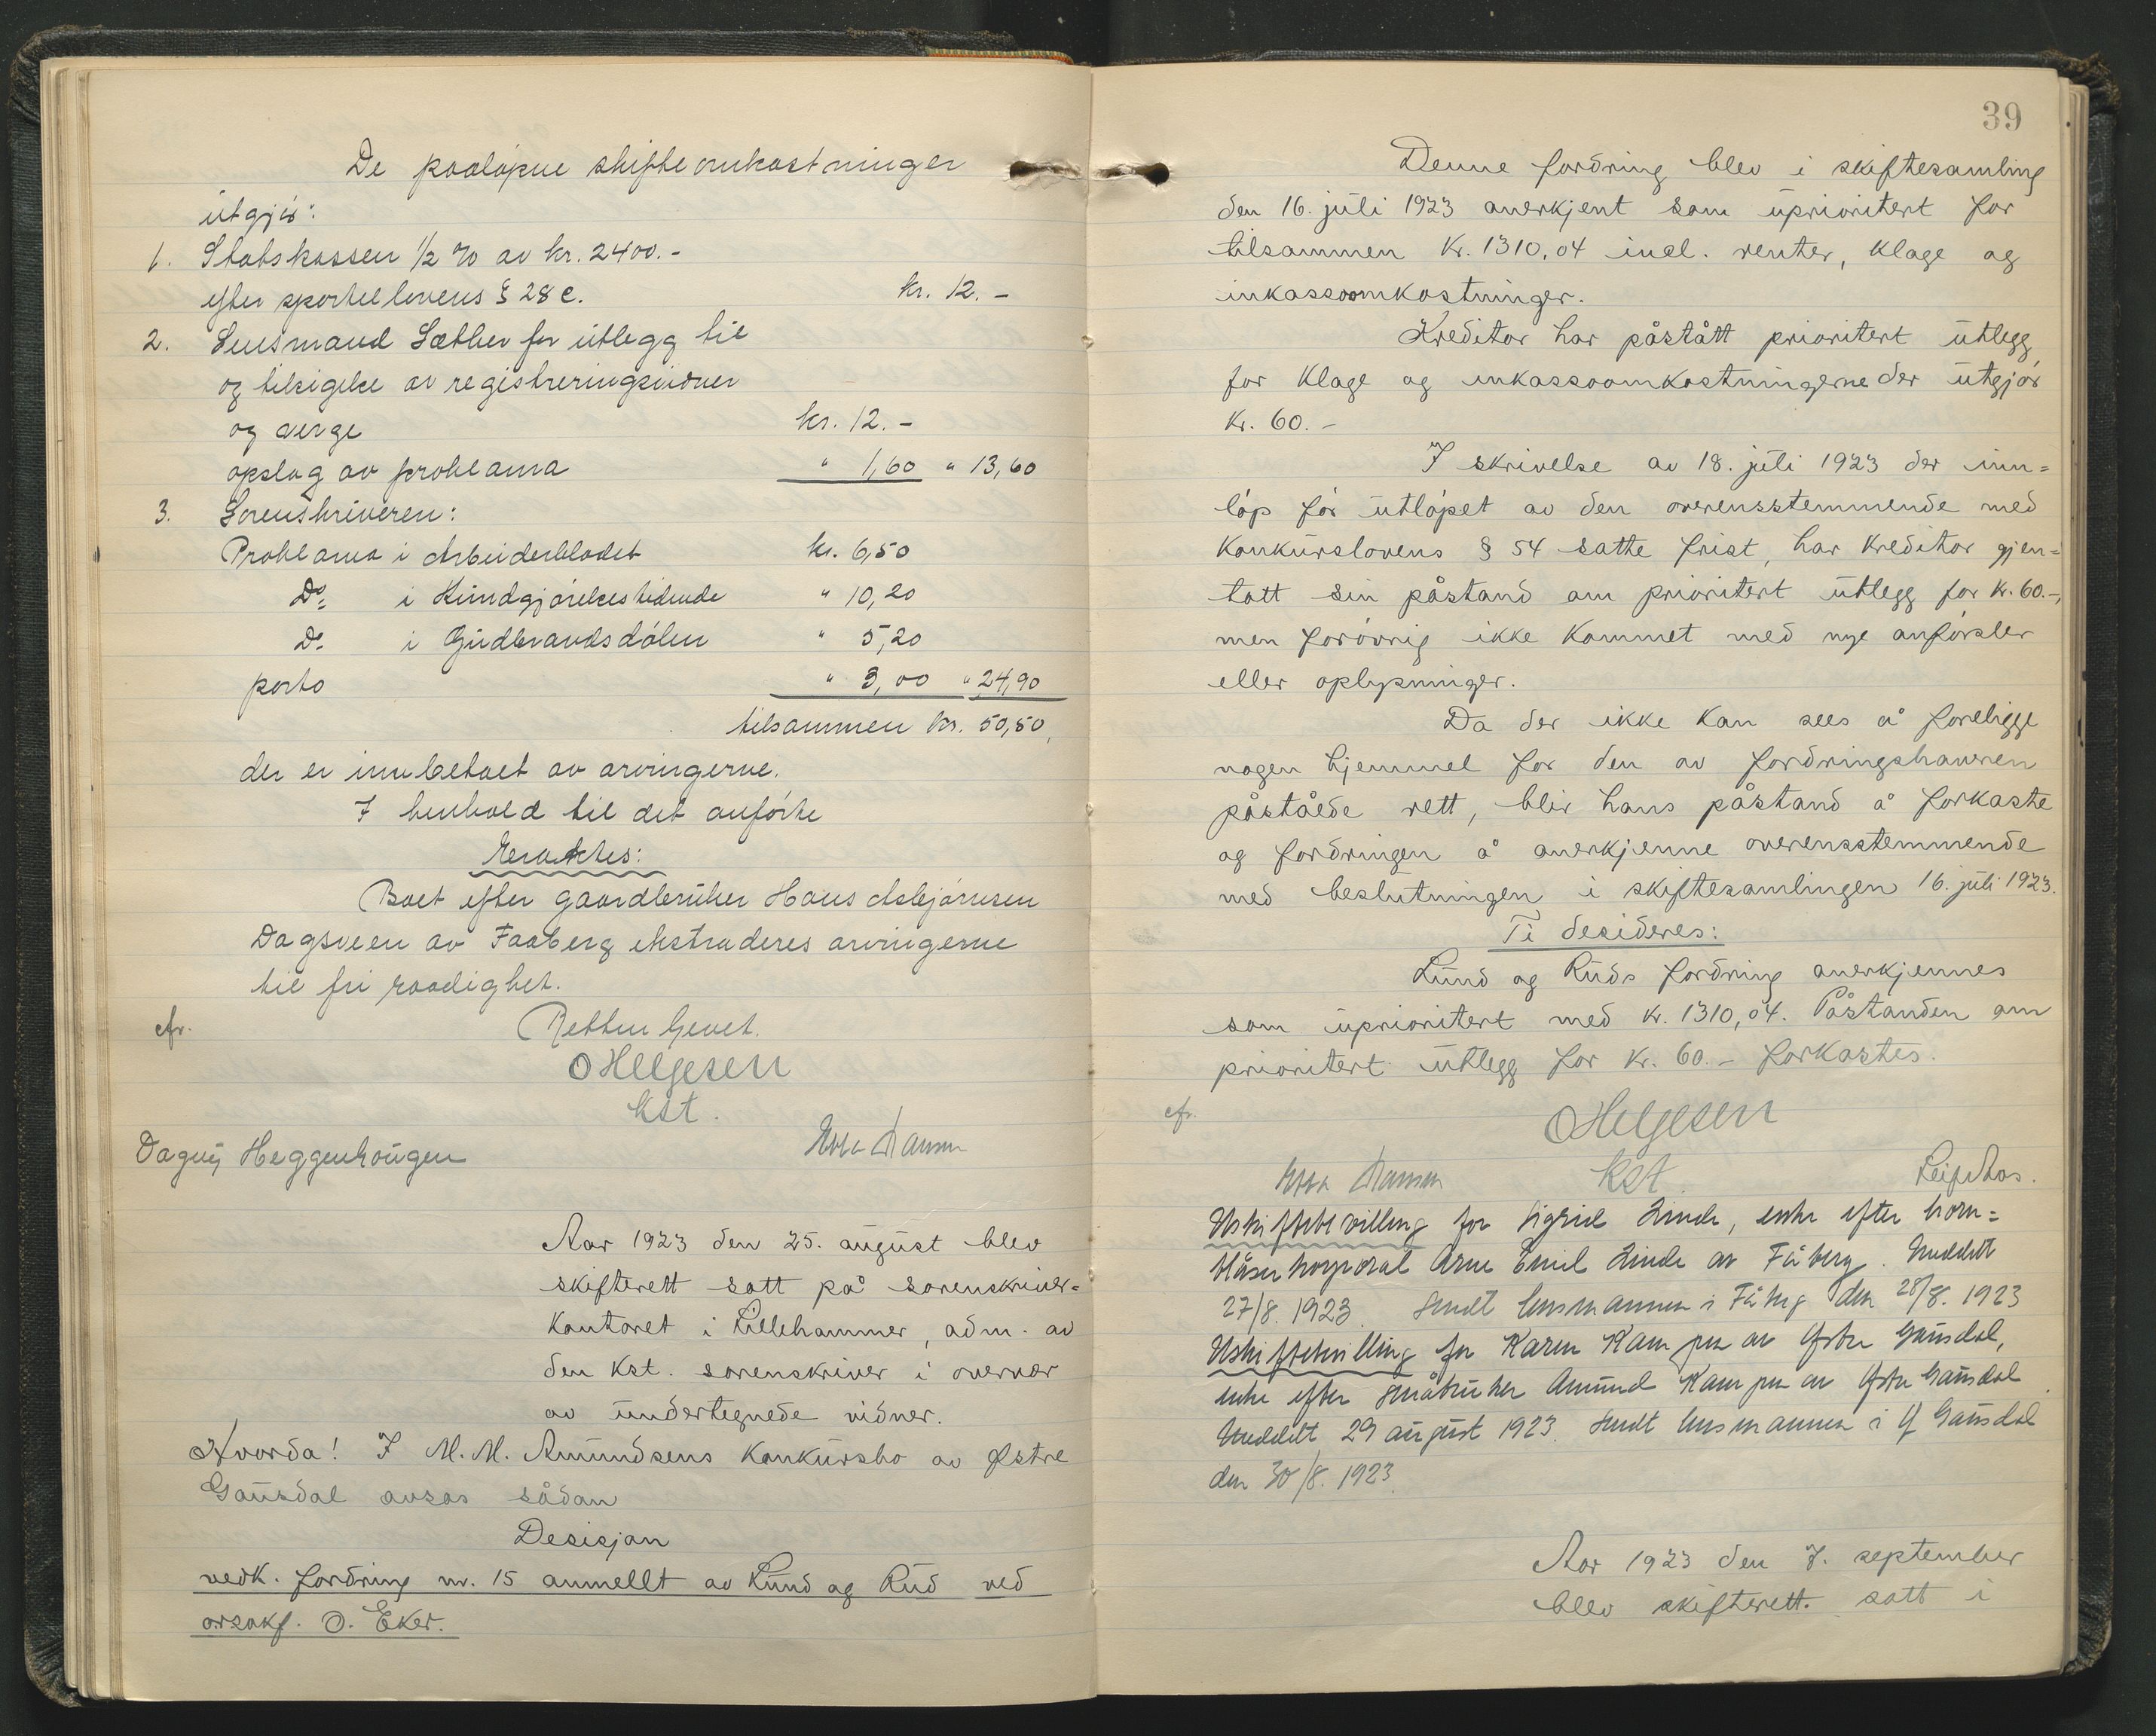 De paaløpne skifteomkostninger
utgjør:
1. Statskassen 1/2 % av kr. 2400.-
efter sportellovens § 28 c. kr. 12.-
2. Lensmand Sæther for utlegg til
og tilsigelse av registreringsvidner
og verge kr. 12.-
opslag av proklama " 1,60 " 13,60
3. Sorenskriveren:
Proklama i Arbeiderbladet kr. 6,50
Do. i Kundgjørelsestidende " 10,20
Do. i Gudbrandsdølen " 5,20
porto " 3,00 " 24,90
tilsammen kr. 50,50,
der er innbetalt av arvingerne.
I henhold til det anførte
Eraktes:
Boet efter gaardbruker Hans Asbjørnsen
Dagsveen av Faaberg ekstraderes arvingerne
til fri raadighet.
cfr. Retten hevet.
O Helgesen
kst.
Dagny Heggenhougen
Aar 1923 den 25. august blev
skifterett satt på sorenskriver=
kontoret i Lillehammer, adm. av
den kst. sorenskriver i overvær
av undertegnede vidner.
Hvorda! I M. M. Amundsens konkursbo av Østre
Gausdal avsas sådan
Desisjon
vedk. fordring nr. 15 anmellt av Lund og Rud ved
o.r.sakf. O. Eker.
39
Denne fordring blev i skiftesamling
den 16. juli 1923 anerkjent som uprioritert for
tilsammen kr. 1310,04 incl. renter, klage og
inkassoomkostninger.
Kreditor har påstått prioritert utlegg
for klage og inkassoomkostningerne der utgjør
kr. 60.-
I skrivelse av 18. juli 1923 der inn=
løp før utløpet av den overensstemmende med
konkurslovens § 54 satte frist, har kreditor gjen=
tatt sin påstand om prioritert utlegg for kr. 60.-,
men forøvrig ikke kommet med nye anførsler
eller oplysninger.
Da der ikke kan sees å foreligge
nogen hjemmel for den av fordringshaveren
påståede rett, blir hans påstand å forkaste
og fordringen å anerkjenne overensstemmende
med beslutningen i skiftesamlingen 16. juli 1923.
Ti desideres:
Lund og Ruds fordring anerkjennes
som uprioritert med kr. 1310,04. Påstanden om
prioritert utlegg for kr. 60.- forkastes.
cfr. O Helgesen
kst. Leif Aas.
Uskiftebevilling for Sigrid Linde, enke efter horn=
blåser korporal Arne Emil Linde av Fåberg. Meddelt
27/8. 1923. Sendt lensmannen i Fåberg den 28/8. 1923
Uskiftebevilling for Karen Kampen av Østre Gausdal,
enke efter småbruker Amund Kampen av Østre Gausdal.
Meddelt 29 august 1923. Sendt lensmannen i Ø Gausdal
den 30/8. 1923.
Aar 1923 den 7. september
blev skifterett satt i